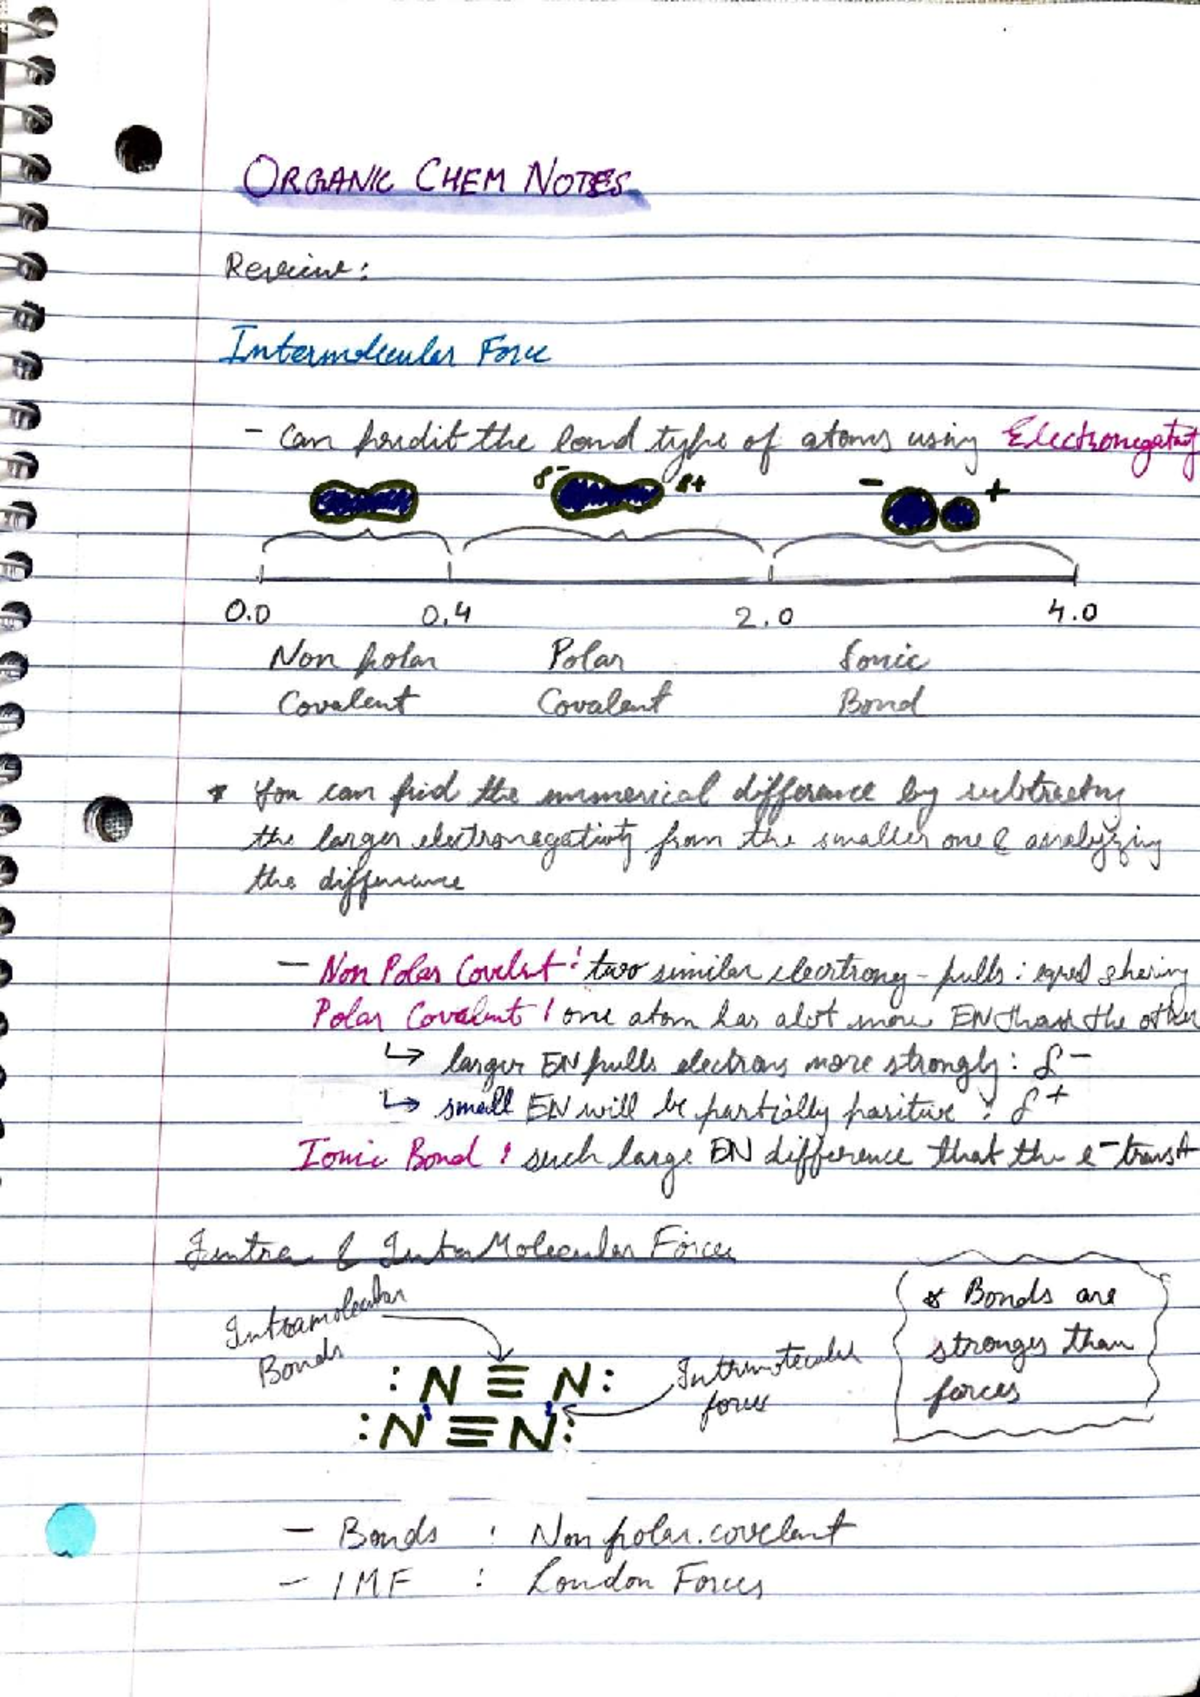 ORGANIC CHEM NOTES
Review:
Intermolecular Force
- Can predit the bond type of atoms using Electronegativity
δ- δ+ - +
0.0 0.4 2.0 4.0
Non polar Polar Ionic
Covalent Covalent Bond
* You can find the numerical difference by subtracting
the larger electronegativity from the smaller one & analyzing
the difference
- Non Polar Covelnt: two similar electrong - pulls: equal sharing
Polar Covalent: one atom has alot more EN than the other
↳ larger EN pulls electrons more strongly: δ-
↳ small EN will be partially positive: δ+
Ionic Bond: such large EN difference that the e- transf
Intra & Inter Molecular Forces
Intramolecular
Bonds
:N≡N:
:N≡N:
Intermolecular
forces
* Bonds are
stronger than
forces
- Bonds : Non polar covelant
- IMF : London Forces